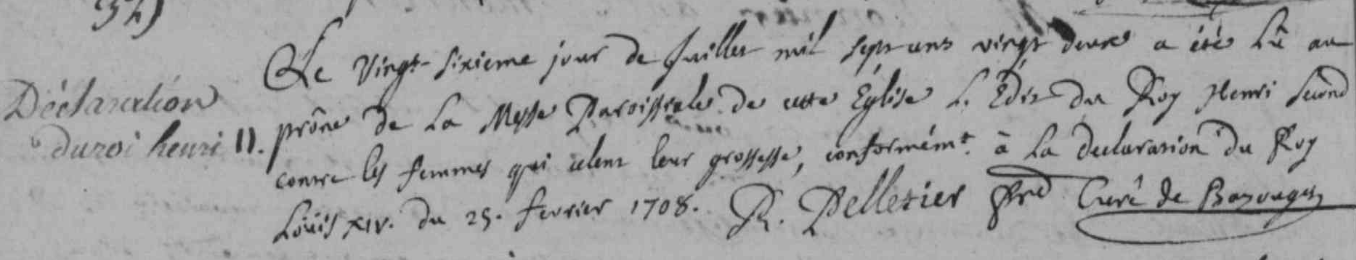 Le Vingt-sixieme jour de Juillet mil sept cens vingt deux a été Lû au
Déclaration
du roi henri II.
prône de La Messe Paroissiale de cette Église L'Edit du Roy Henri Second
contre les femmes qui celent leur grossesse, conformémt. à La declaration du Roy
Loüis XIV. du 25. fevrier 1708. R. Pelletier Pre Curé de Bazouges